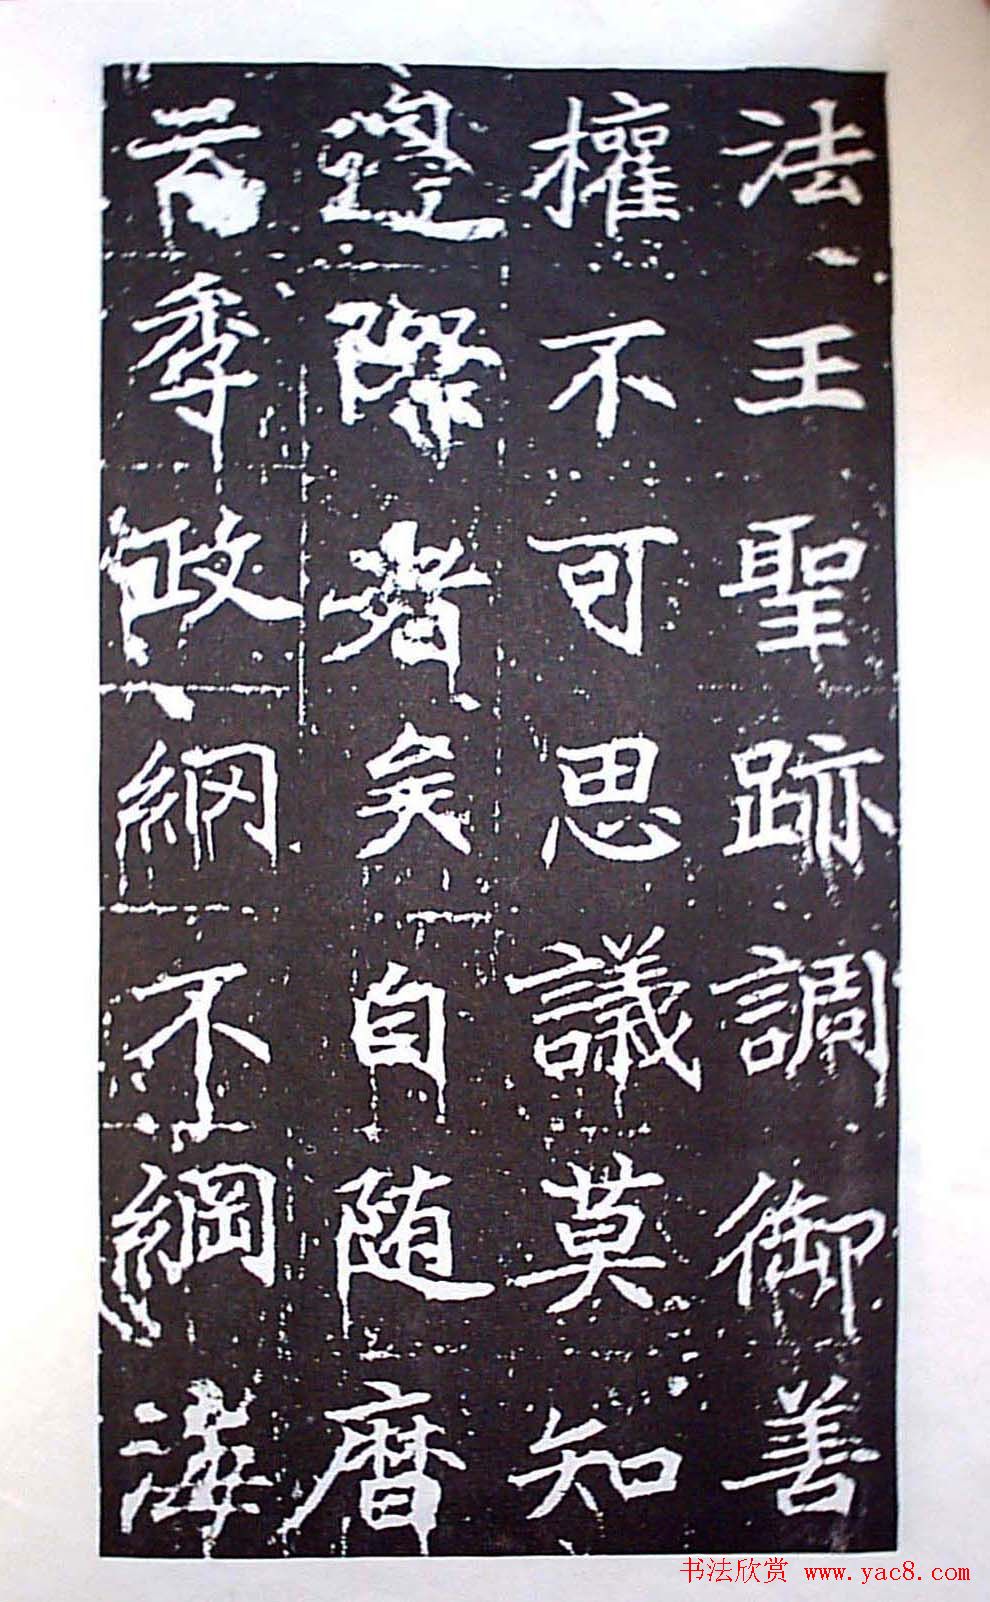 法王聖跡調御善
權不可思議莫知
邊際者矣自随暦
云季政綱不綱海
书法欣赏 www.yac8.com